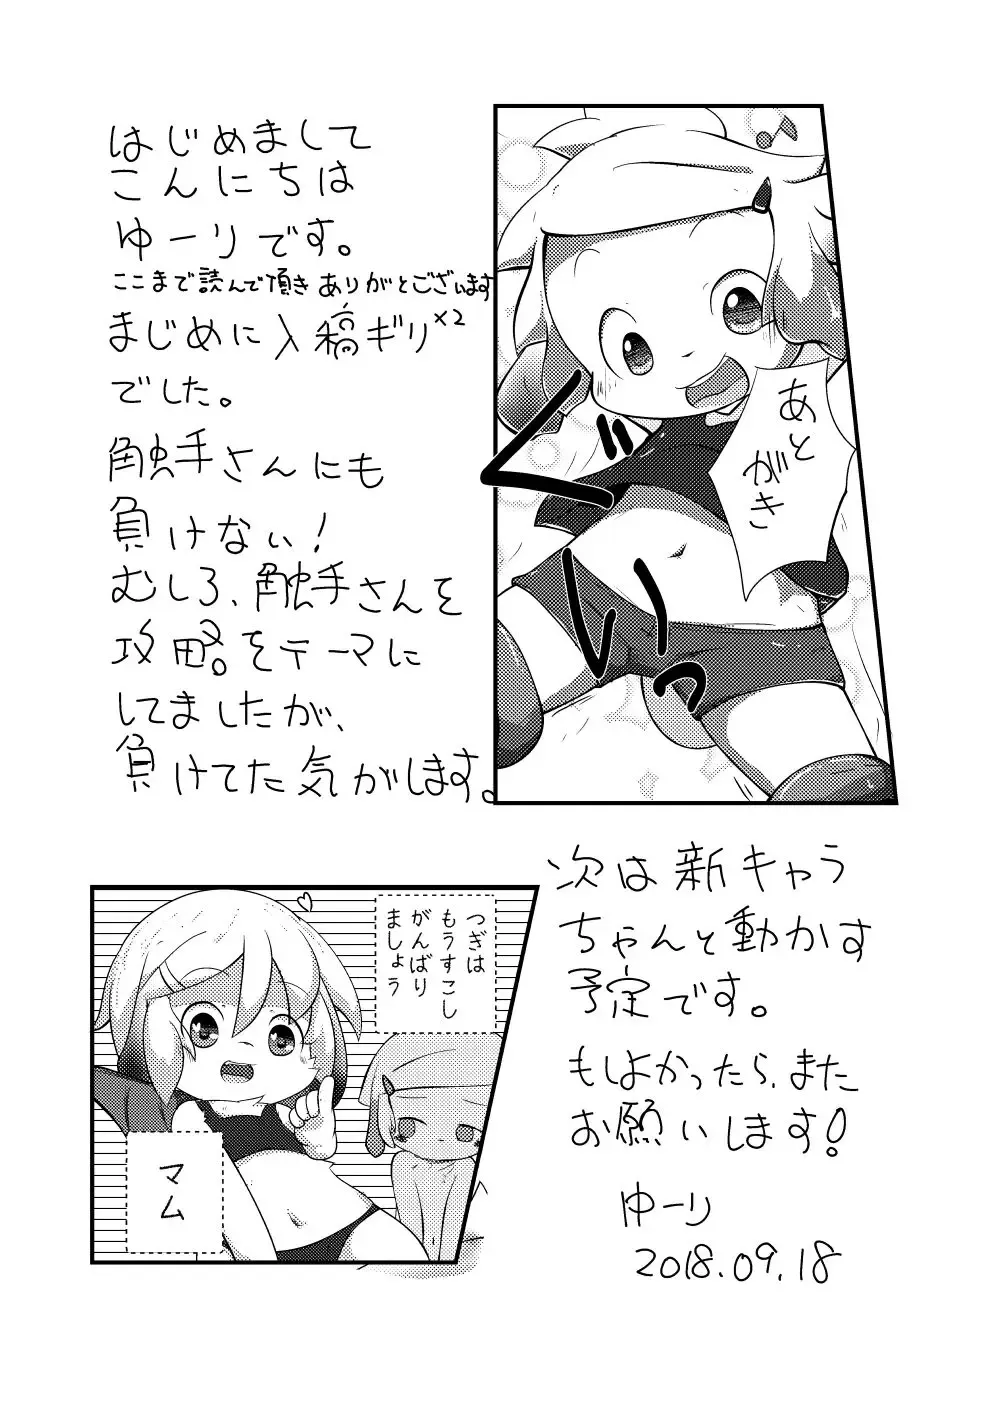 はじめまして
こんにちは
ゆーりです。
ここまで読んで頂きありがとございます
まじめに入稿ギリ×2
でした。
触手さんにも
負けない!
むしろ、触手さんを
攻略。をテーマに
してましたが、
負けてた気がします。
あとがき
ぐいっ
次は新キャラ
ちゃんと動かす
予定です。
もしよかったら、また
お願いします!
ゆーり
2018.09.18
つぎは
もうすこし
がんばり
ましょう
マム